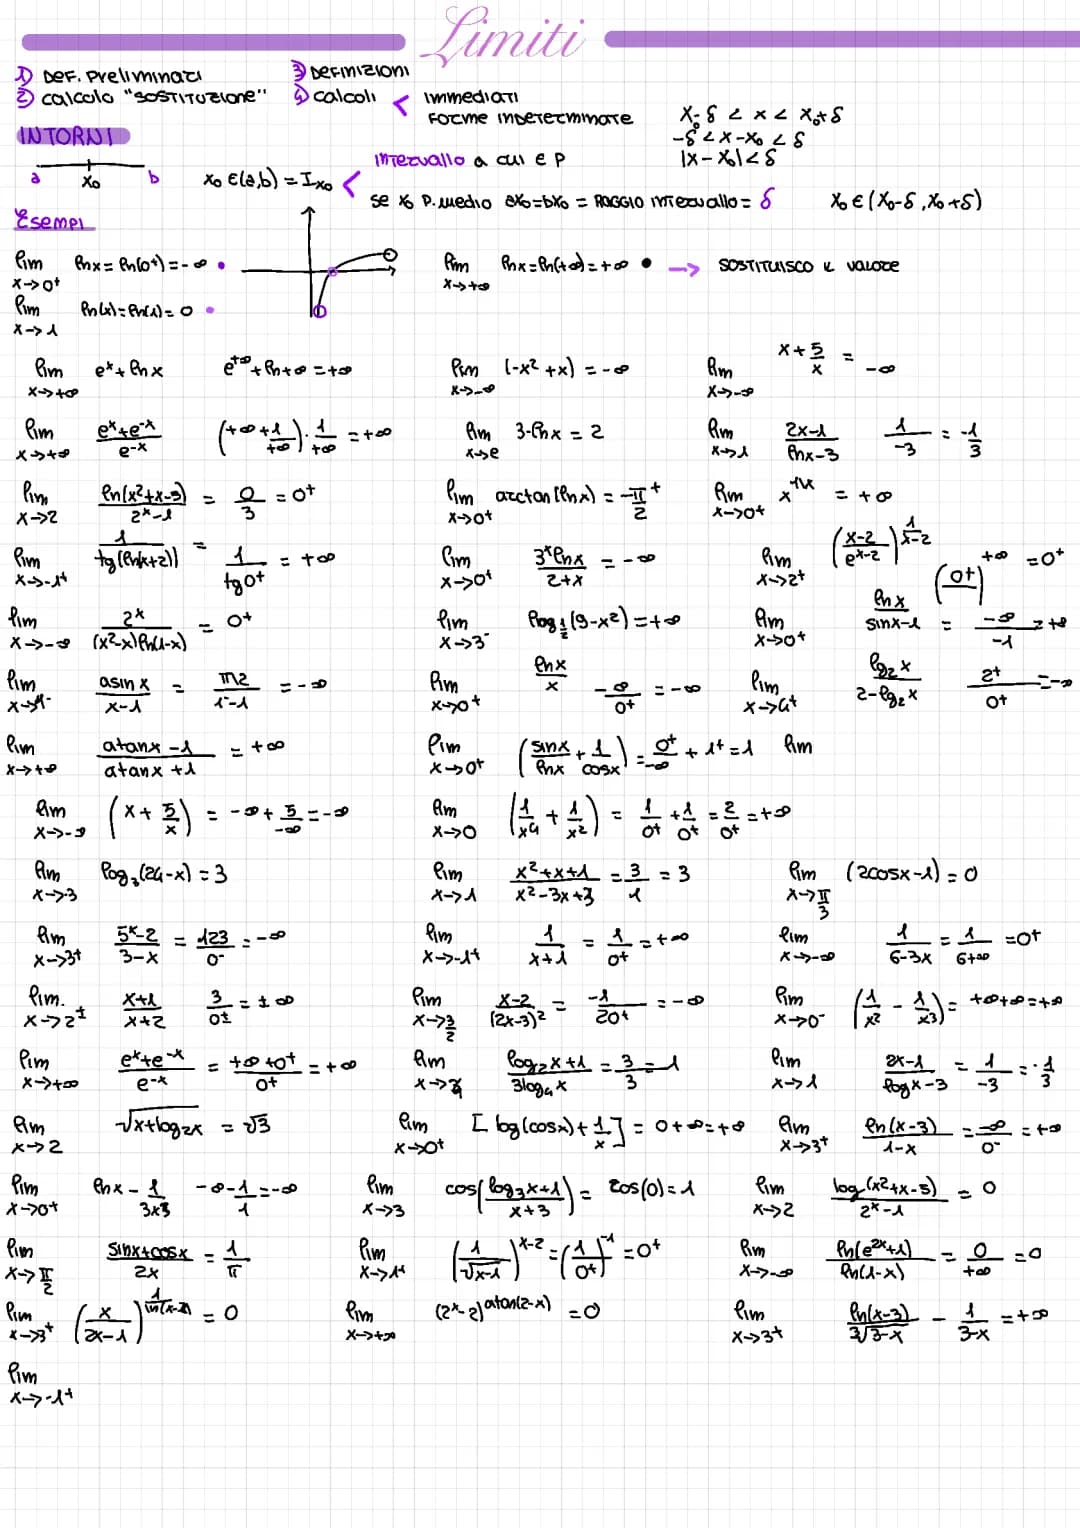 Limiti
1) DEF. Preliminari 3) DEFINIZIONI
2) calcolo "SOSTITUZIONE" 4) calcoli < immediati
Forme indeterminate
x₀-δ < x < x₀+δ
-δ < x-x₀ < δ
|x-x₀| < δ
INTORNI
a x₀ b x₀ ∈ (a,b) = Ix₀ < intervallo a cui e P
se x₀ P. medio ax₀=bx₀ = RAGGIO intervallo = δ x₀ ∈ (x₀-δ, x₀+δ)
Esempi
lim x→0⁺ ln x = ln(0⁺) = -∞ • lim x→+∞ ln x = ln(+∞) = +∞ • → SOSTITUISCO il valore
lim x→1 ln(x) = ln(1) = 0 •
lim x→+∞ eˣ + ln x e^+∞ + ln+∞ = +∞ lim x→-∞ (-x² + x) = -∞ lim x→-∞ x + 5/x = -∞
lim x→+∞ (eˣ+e⁻ˣ)/e⁻ˣ (+∞ + 1/+∞) · 1/+∞ = +∞ lim x→e 3-ln x = 2 lim x→1 (2x-1)/(ln x-3) 1/-3 = -1/3
lim x→2 ln(x²+x-5)/(2ˣ-1) = 0/3 = 0⁺ lim x→0⁺ arctan(ln x) = -π/2⁺ lim x→0⁺ x^-1/x = +∞
lim x→-1⁺ 1/tg(ln(x+2)) = 1/tg0⁺ = +∞ lim x→0⁺ 3ˣln x/(2+x) = -∞ lim x→2⁺ ((x-2)/(eˣ-2))^(1/(x-2)) (0⁺)^+∞ = 0⁺
lim x→-∞ 2ˣ/((x²-x)ln(1-x)) = 0⁺ lim x→3⁻ log 1/2 (9-x²) = +∞ lim x→0⁺ ln x/(sinx-1) = -∞/-1 = +∞
lim x→1⁻ asin x/(x-1) = π/2/(1⁻-1) = -∞ lim x→0⁺ ln x/x -∞/0⁺ = -∞ lim x→4⁺ lg₂ x/(2-lg₂ x) 2⁺/0⁺ = -∞
lim x→+∞ (atanx -1)/(atanx +1) = +∞ lim x→0⁺ (sinx/ln x + 1/cosx) = 0⁺/-∞ + 1⁺ = 1 lim
lim x→-∞ (x + 5/x) = -∞ + 5/-∞ = -∞ lim x→0 (1/x⁴ + 1/x²) = 1/0⁺ + 1/0⁺ = 2/0⁺ = +∞
lim x→-3 log₃(24-x) = 3 lim x→1 (x²+x+1)/(x²-3x+3) = 3/1 = 3 lim x→π/3 (2cosx-1) = 0
lim x→3⁺ (5ˣ-2)/(3-x) = 123/0⁻ = -∞ lim x→-1⁺ 1/(x+1) = 1/0⁺ = +∞ lim x→-∞ 1/(6-3x) = 1/(6+∞) = 0⁺
lim. x→2± (x+1)/(x+2) 3/0± = ±∞ lim x→3/2 (x-2)/(2x-3)² = -1/20⁺ = -∞ lim x→0⁻ (1/x² - 1/x³) = +∞+∞ = +∞
lim x→+∞ (eˣ+e⁻ˣ)/e⁻ˣ = (+∞+0⁺)/0⁺ = +∞ lim (log₂x+1)/(3log₄x) = 3/3 = 1 lim x→1 (2x-1)/(log x-3) = 1/-3 = -1/3
lim x→2 √x+log₂x = √3 lim x→0⁺ [log(cosx) + 1/x] = 0+∞ = +∞ lim x→3⁺ ln(x-3)/(1-x) = -∞/0⁻ = +∞
lim x→0⁺ ln x - 1/3x³ -∞-1/1 = -∞ lim x→3 cos((log₃x+1)/(x+3)) = cos(0) = 1 lim x→2 log(x²+x-5)/(2ˣ-1) = 0
lim x→π/2 (sinx+cosx)/2x = 1/π lim x→1⁺ (1/√x-1)^(x-2) = (1/0⁺)⁻¹ = 0⁺ lim x→-∞ ln(e²ˣ+1)/ln(1-x) = 0/+∞ = 0
lim x→3⁺ (x/(2x-1))^(1/ln(x-2)) = 0 lim x→+∞ (2ˣ-2)^atan(2-x) = 0 lim x→3⁺ ln(x-3)/3√3-x - 1/(3-x) = +∞
lim x→-1⁺